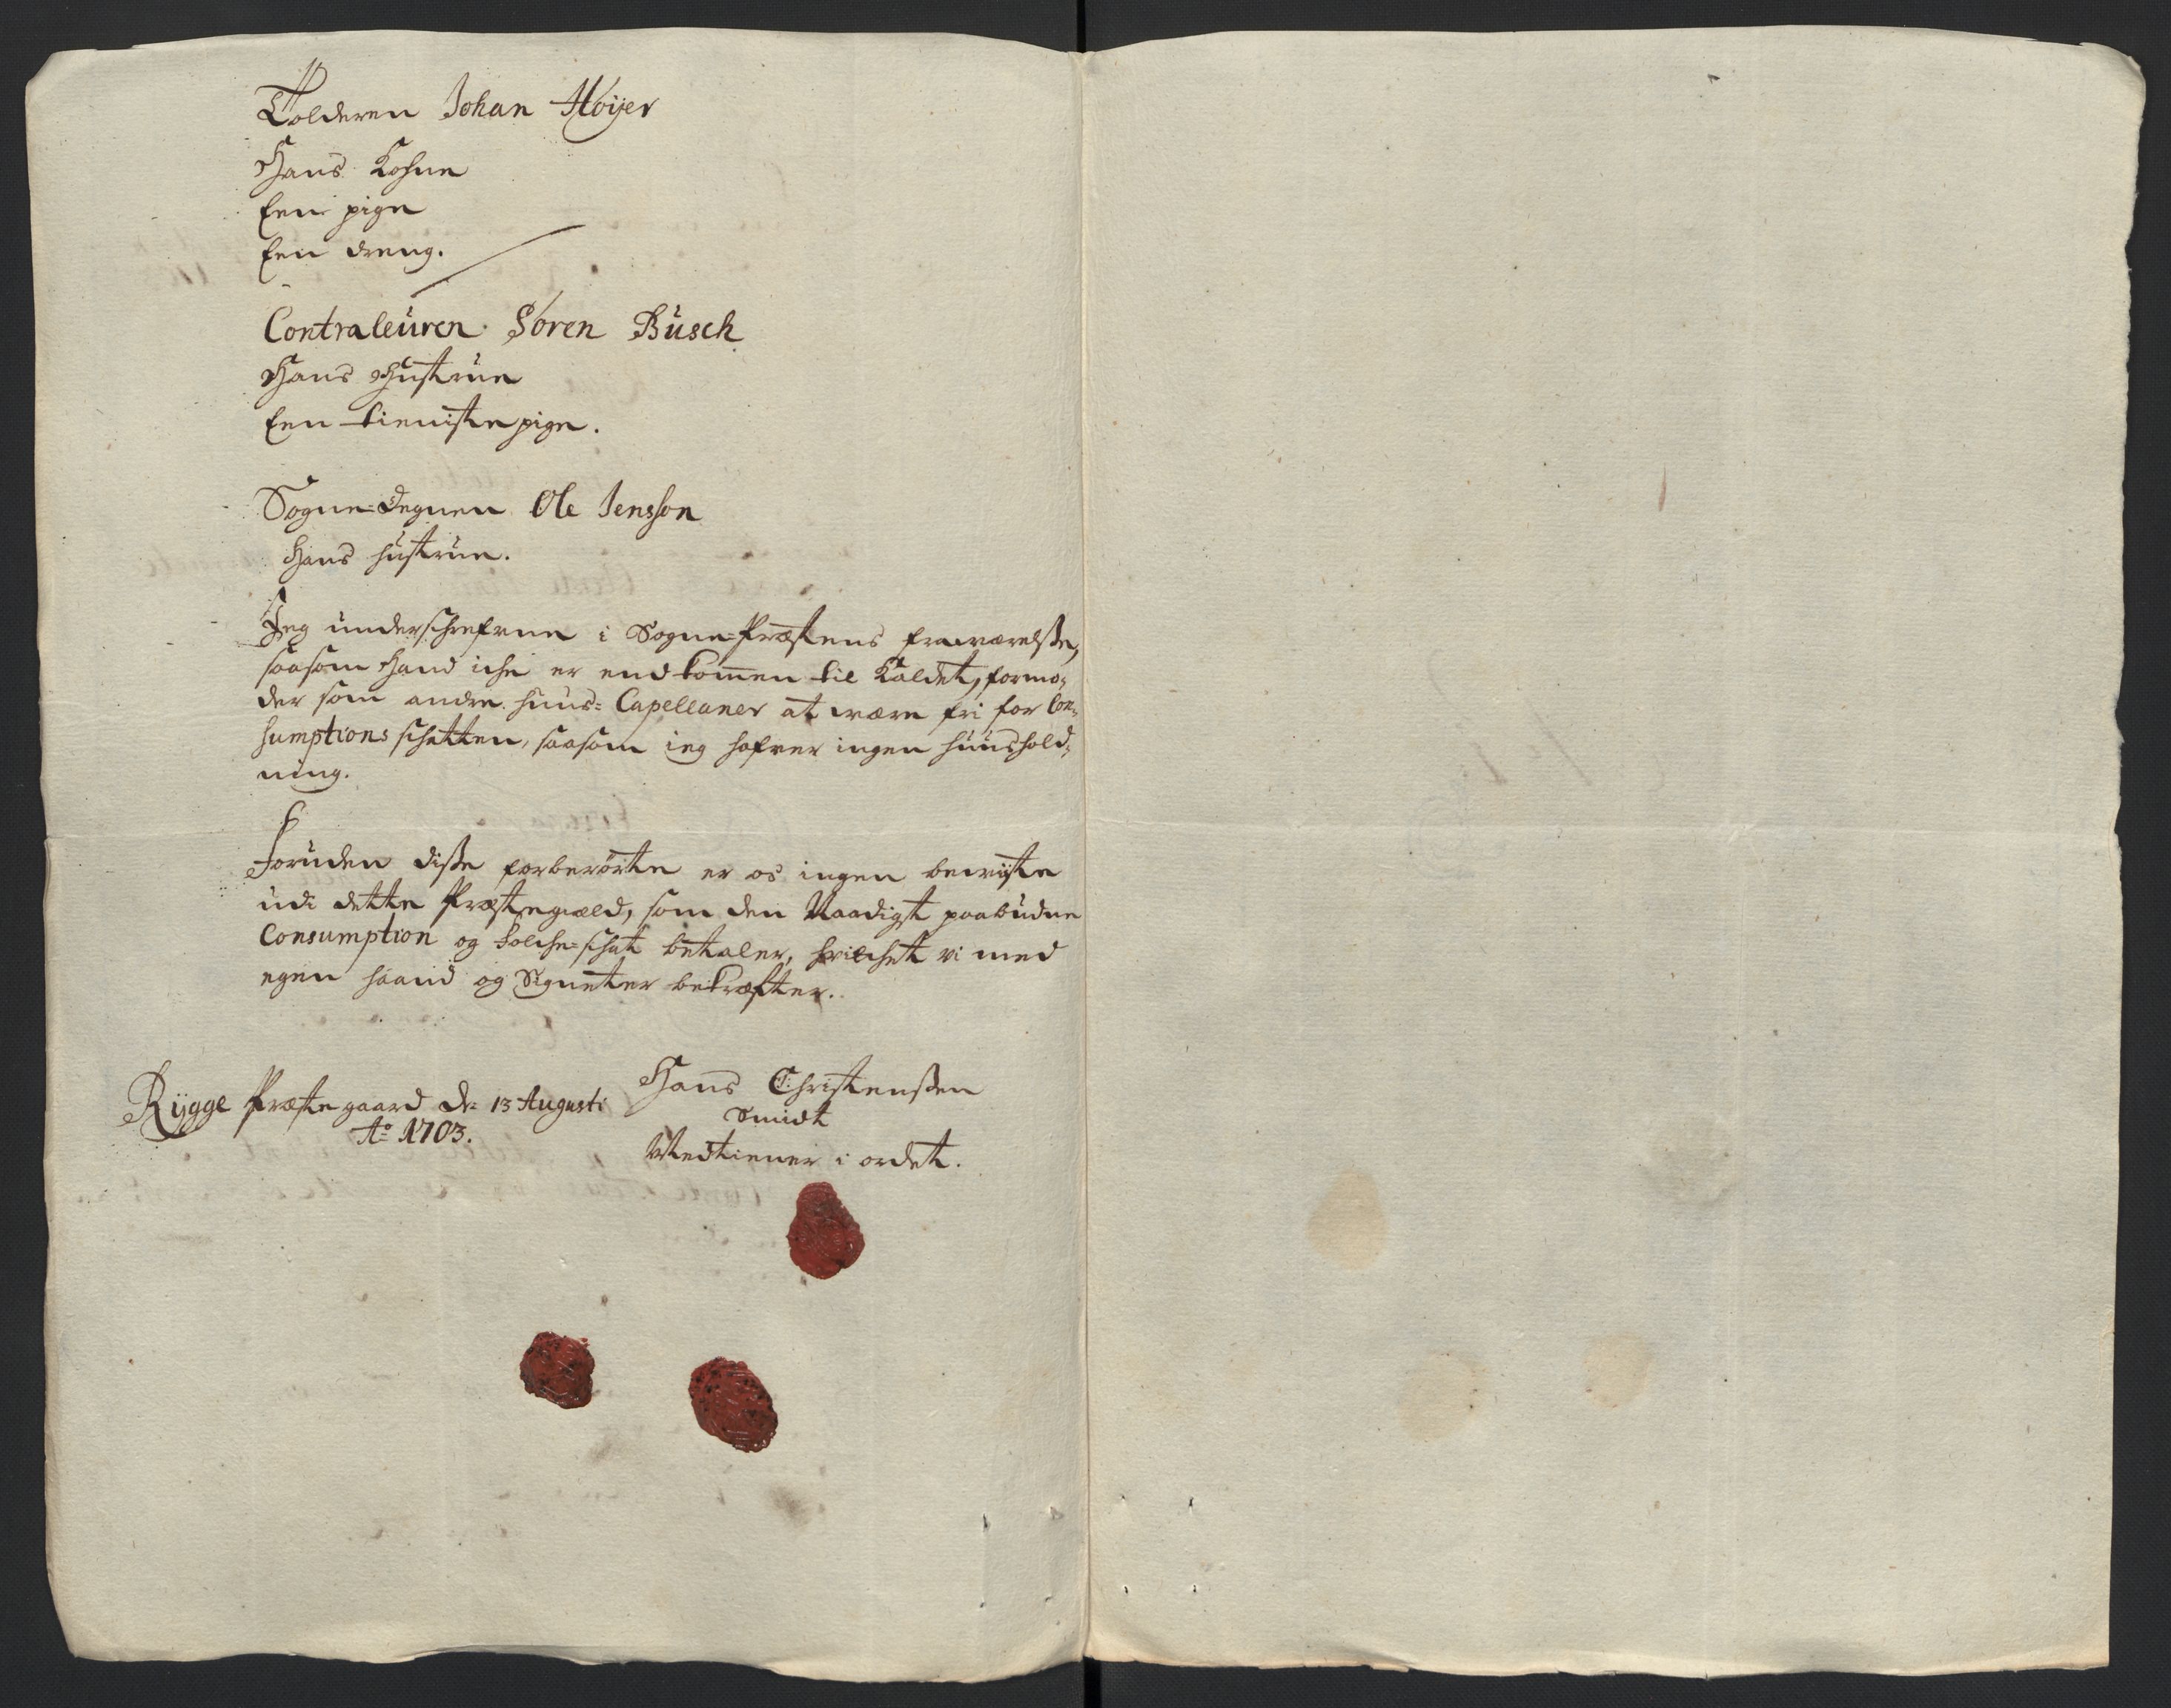 Tolderen Johan Høijer
Hans Kohne
Een pige
Een dreng.
Contraleuren Søren Busch
Hans Hustrue
Een tieniste pige.
Sogne=Degnen Ole Jensson
Hans hustrue.
Jeg underschrefvne i Sogne=Præstens fraværelsse,
saasom Hand iche er end kommen til Kaldet, formo=
der som andre huus= Capellaner at være fri for Con=
sumptions schatten, saasom ieg hafver ingen huushold=
ning.
Foruden disse forberørte er os ingen beviiste
udi dette Præstegield, som den Naadigst paabudne
Consumption og Folche=schat betaler, hvilchet vi med
egen haand og Signeter bekræfter.
Rygge Præstegaard d: 13 Augusti
Ao 1703.
Hans Christenssen
Smidt
Medtiener i ordet.